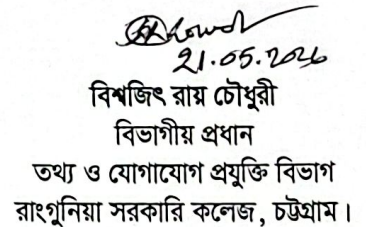 21.05.2026
বিশ্বজিৎ রায় চৌধুরী
বিভাগীয় প্রধান
তথ্য ও যোগাযোগ প্রযুক্তি বিভাগ
রাংগুনিয়া সরকারি কলেজ, চট্টগ্রাম।